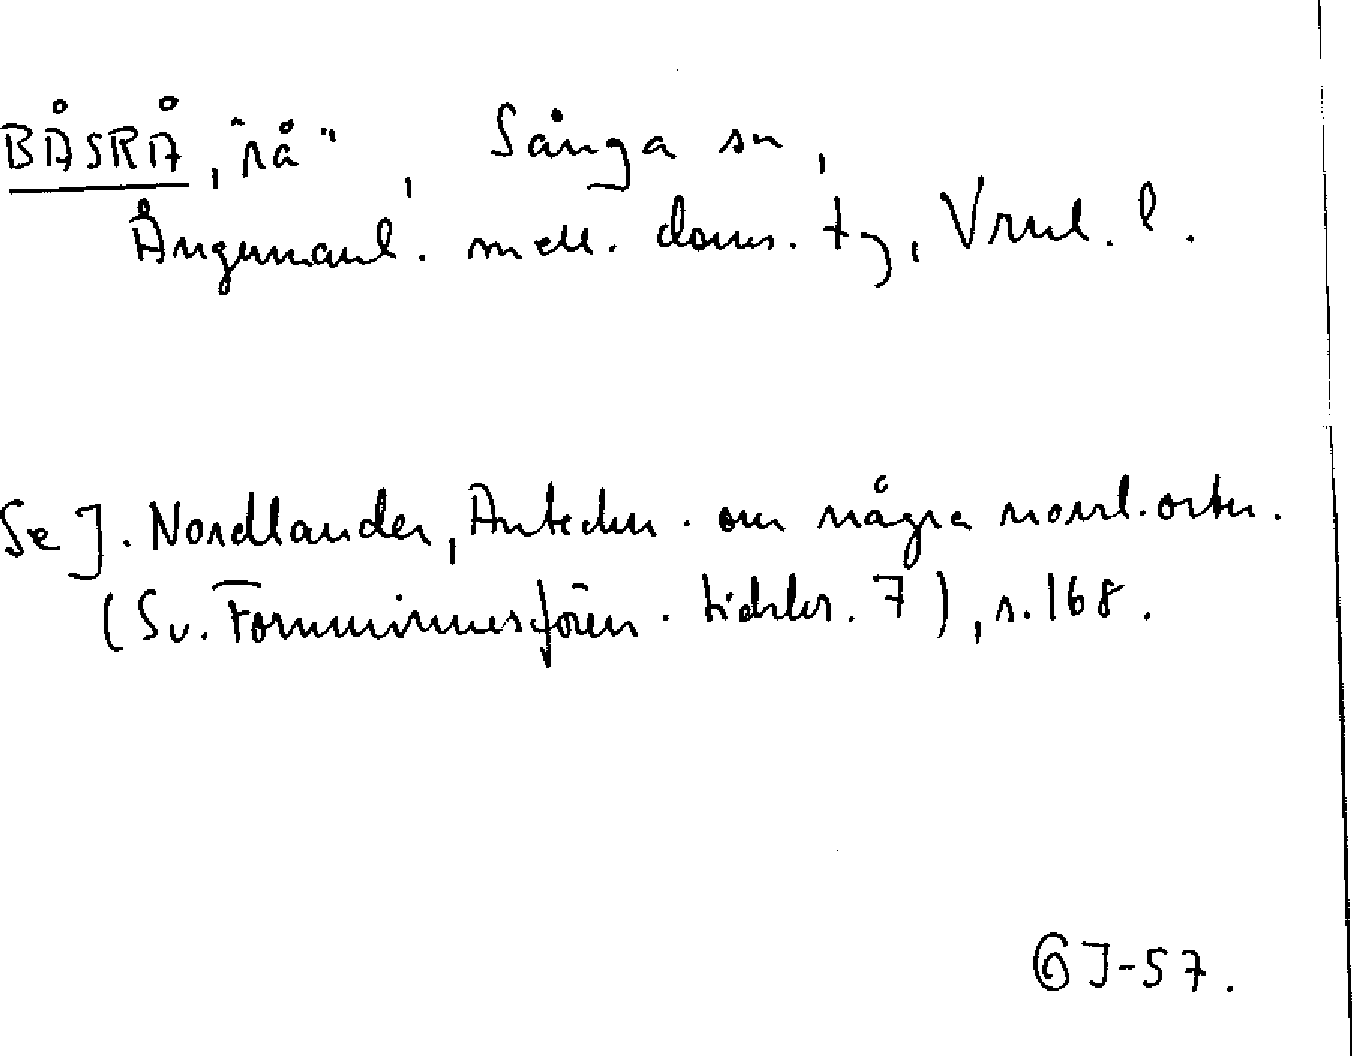 BÅSRÅ, "rå", Sånga sn,
Ångermanl. mell. doms. tg, Vrnl. l.
Se J. Nordlander, Anteckn. om några norrl. ortn.
(Sv. Fornminnesfören. tidskr. 7), s. 168.
GJ-57.